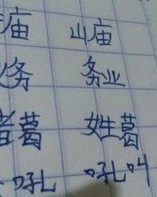 庙 山庙
务 务业
者葛 姓葛
吼 吼叫